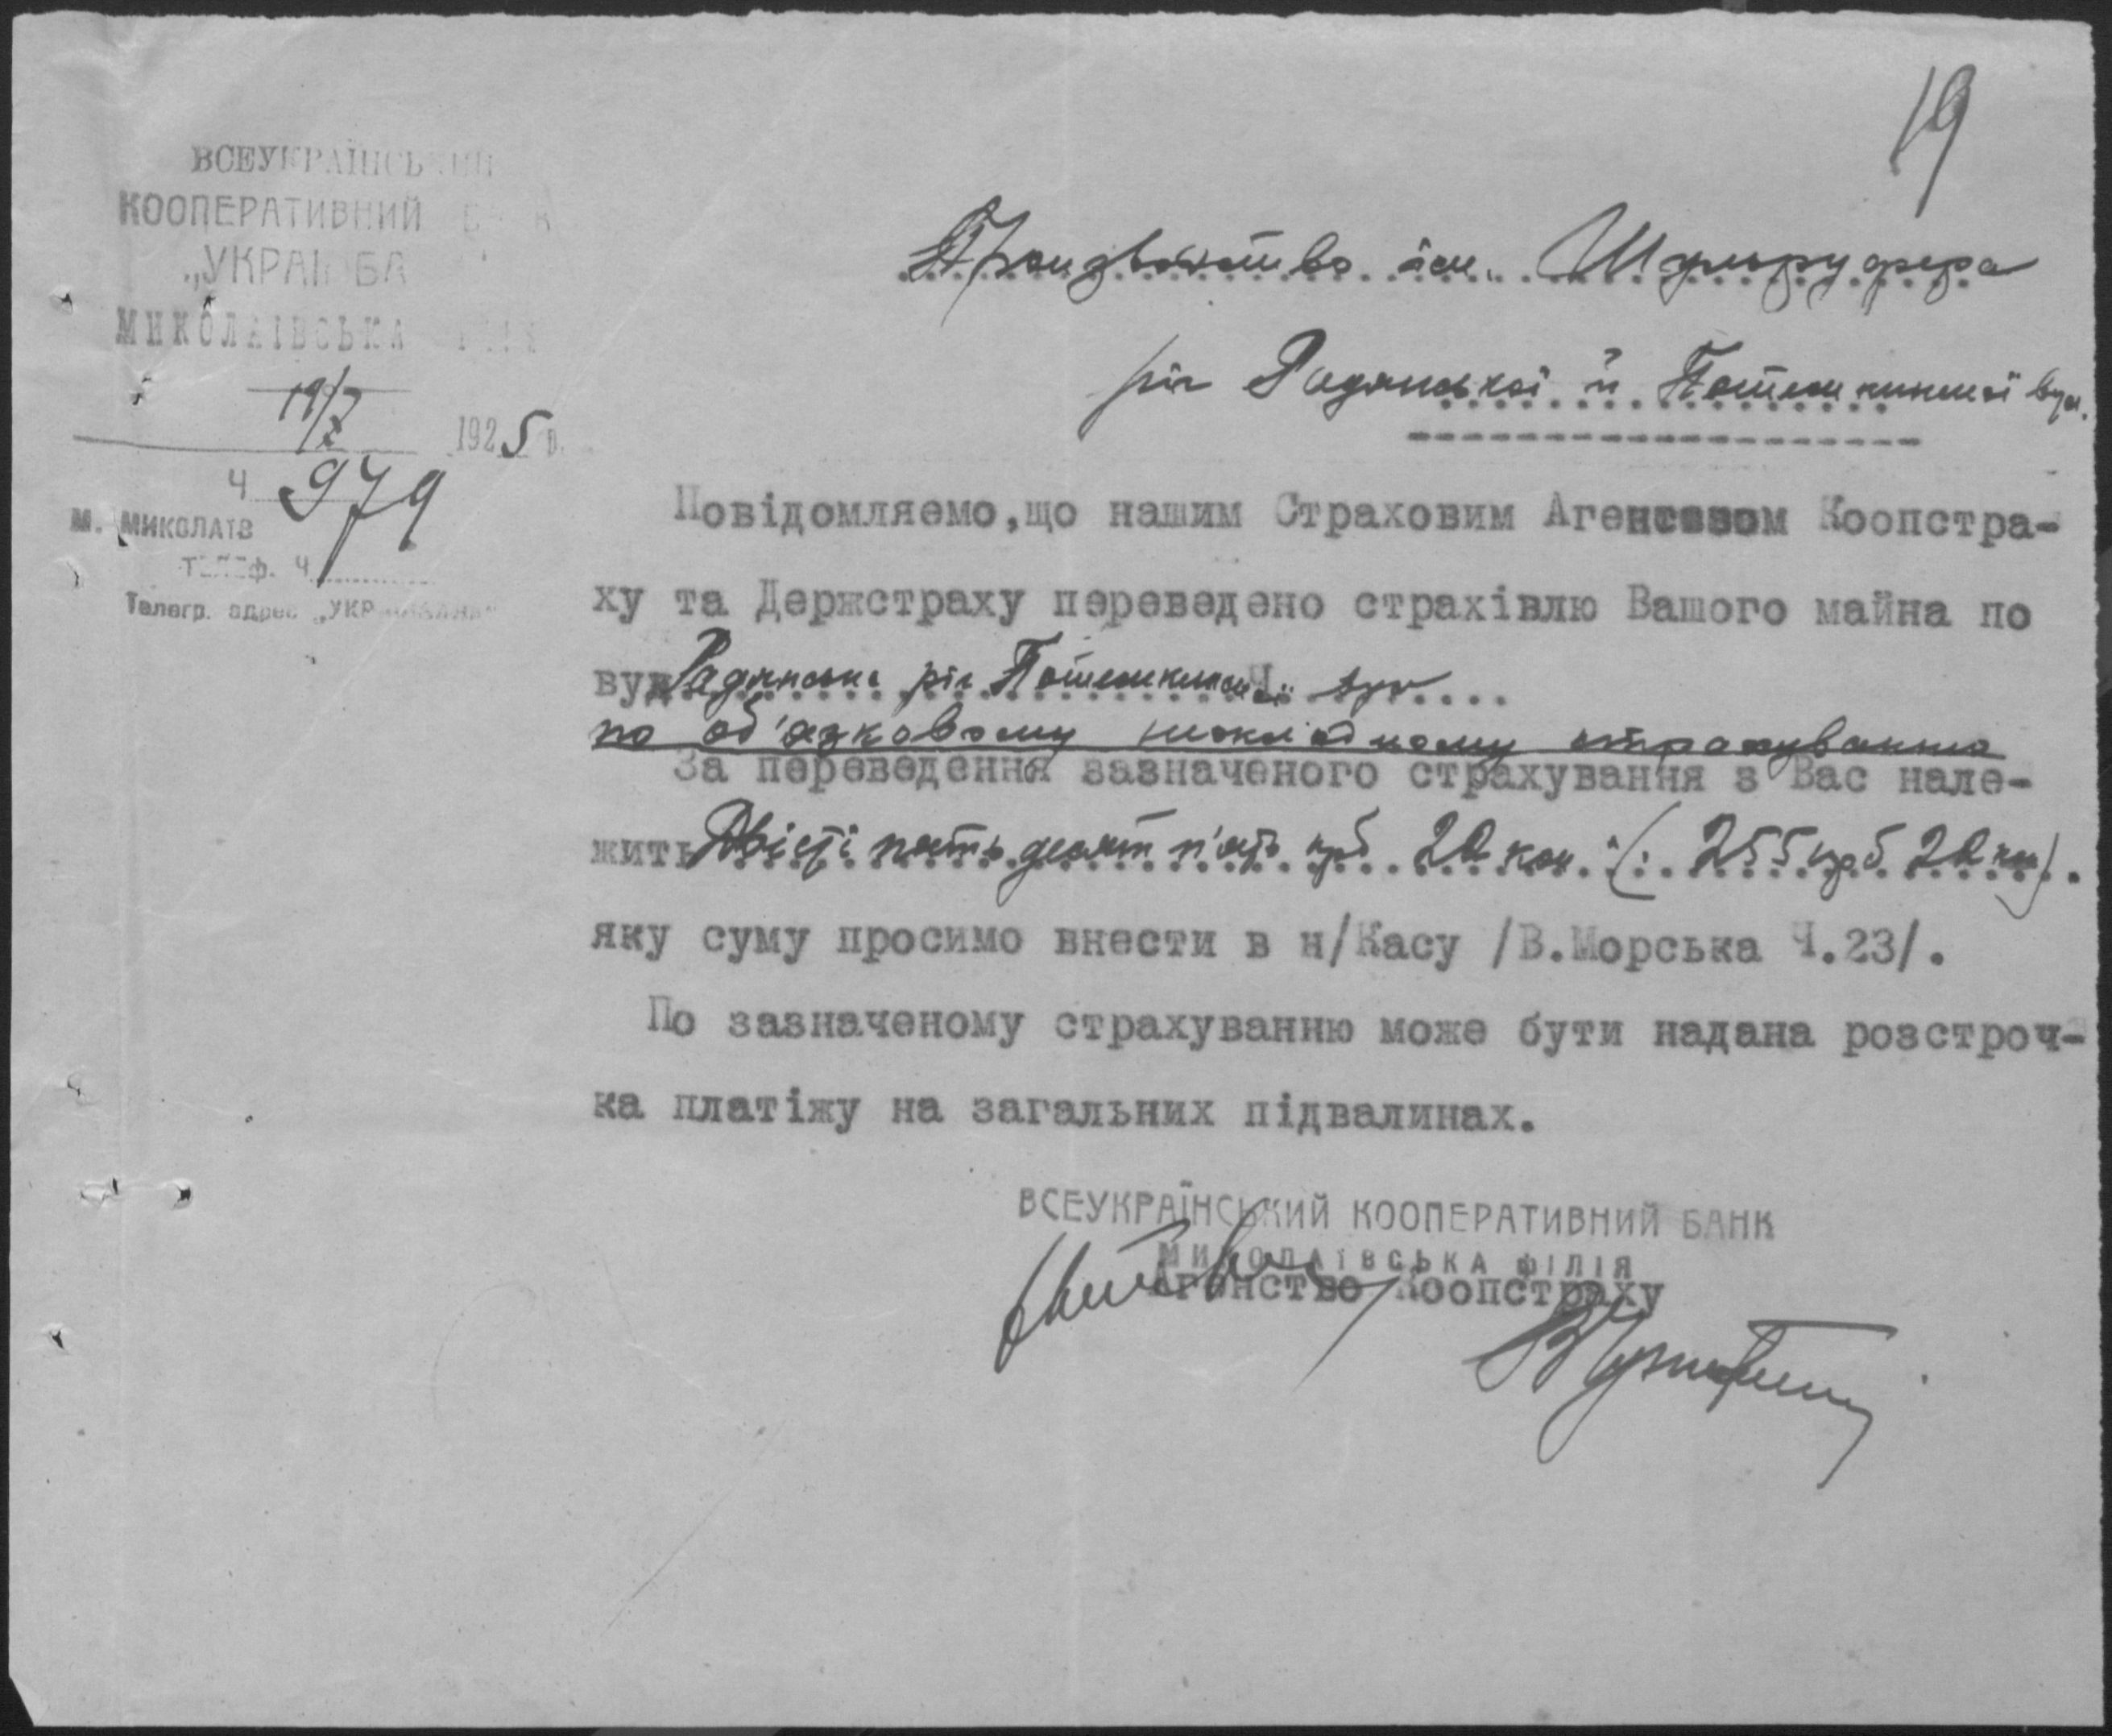 19
ВСЕУКРАЇНСЬКИЙ
КООПЕРАТИВНИЙ Б К
„УКРАЇ БА
МИКОЛАЇВСЬКА ФІЛІЯ
19/X 1925 р.
Ч 979
М. МИКОЛАЇВ
ТЕЛЕФ. Ч
Телегр. адрес „УКР
ім.
ріг Радянської й Потемкинської вул.
Повідомляемо,що нашим Страховим Агенством Коопстра-
ху та Держстраху переведено страхівлю Вашого майна по
вул Радянська ріг Потемкинської
по об'язковому окладному страхуванню
За переведення зазначеного страхування з Вас нале-
жить Двісті пять десят п'ять крб 20 коп. (: 255 крб 20 коп)
яку суму просимо внести в н/Касу /В.Морська Ч.23/.
По зазначеному страхуванню може бути надана розстроч-
ка платіжу на загальних підвалинах.
ВСЕУКРАЇНСЬКИЙ КООПЕРАТИВНИЙ БАНК
МИКОЛАЇВСЬКА ФІЛІЯ
Агенство Коопстраху